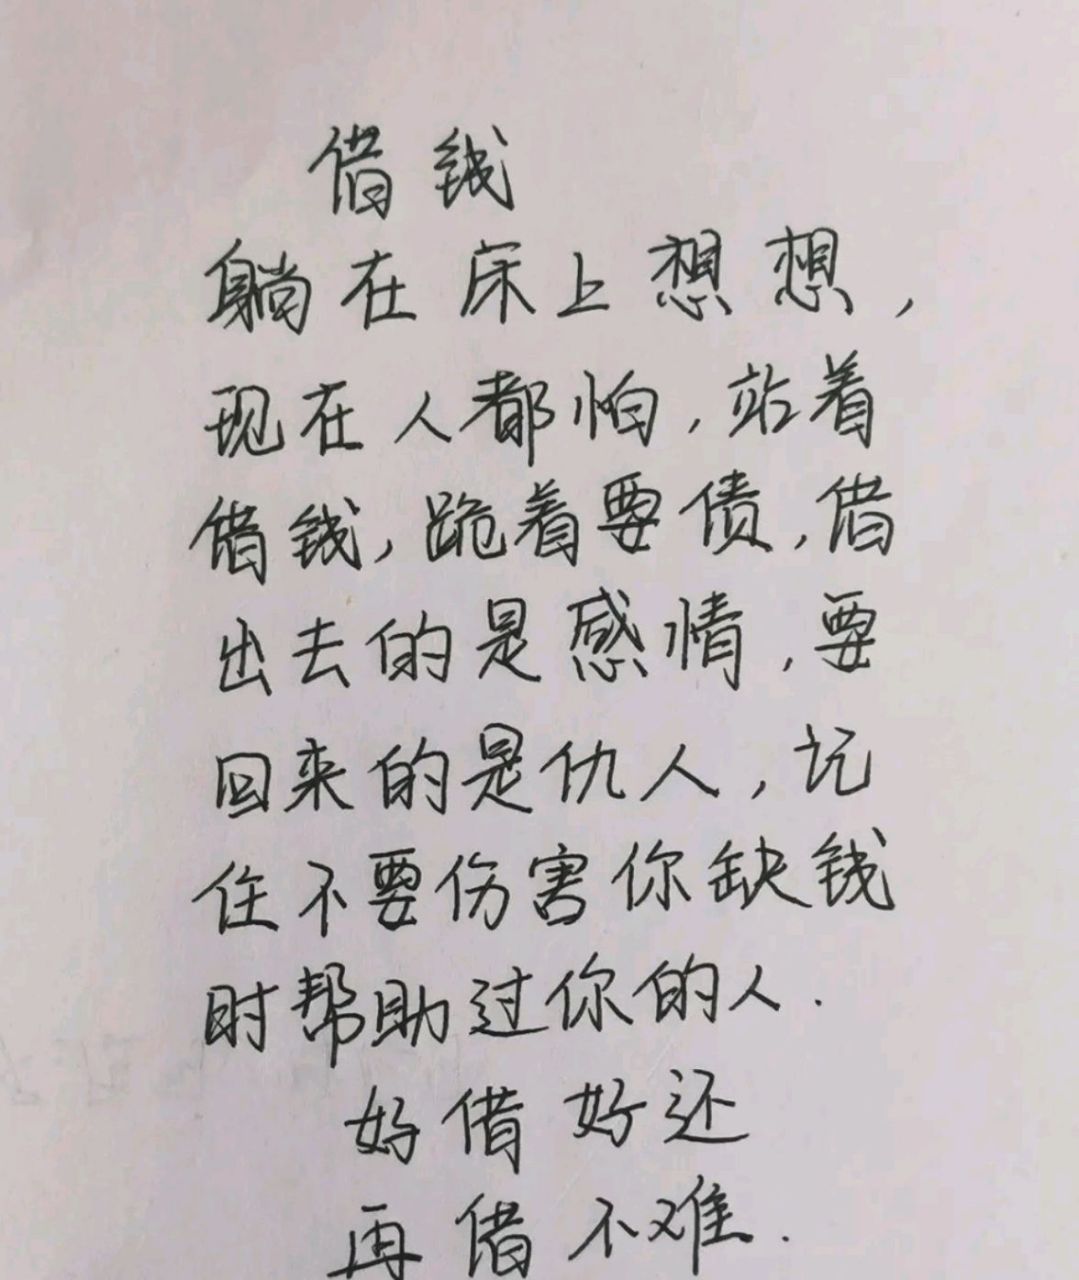 借钱
躺在床上想想，
现在人都怕，站着
借钱，跪着要债，借
出去的是感情，要
回来的是仇人，记
住不要伤害你缺钱
时帮助过你的人.
好借好还
再借不难.